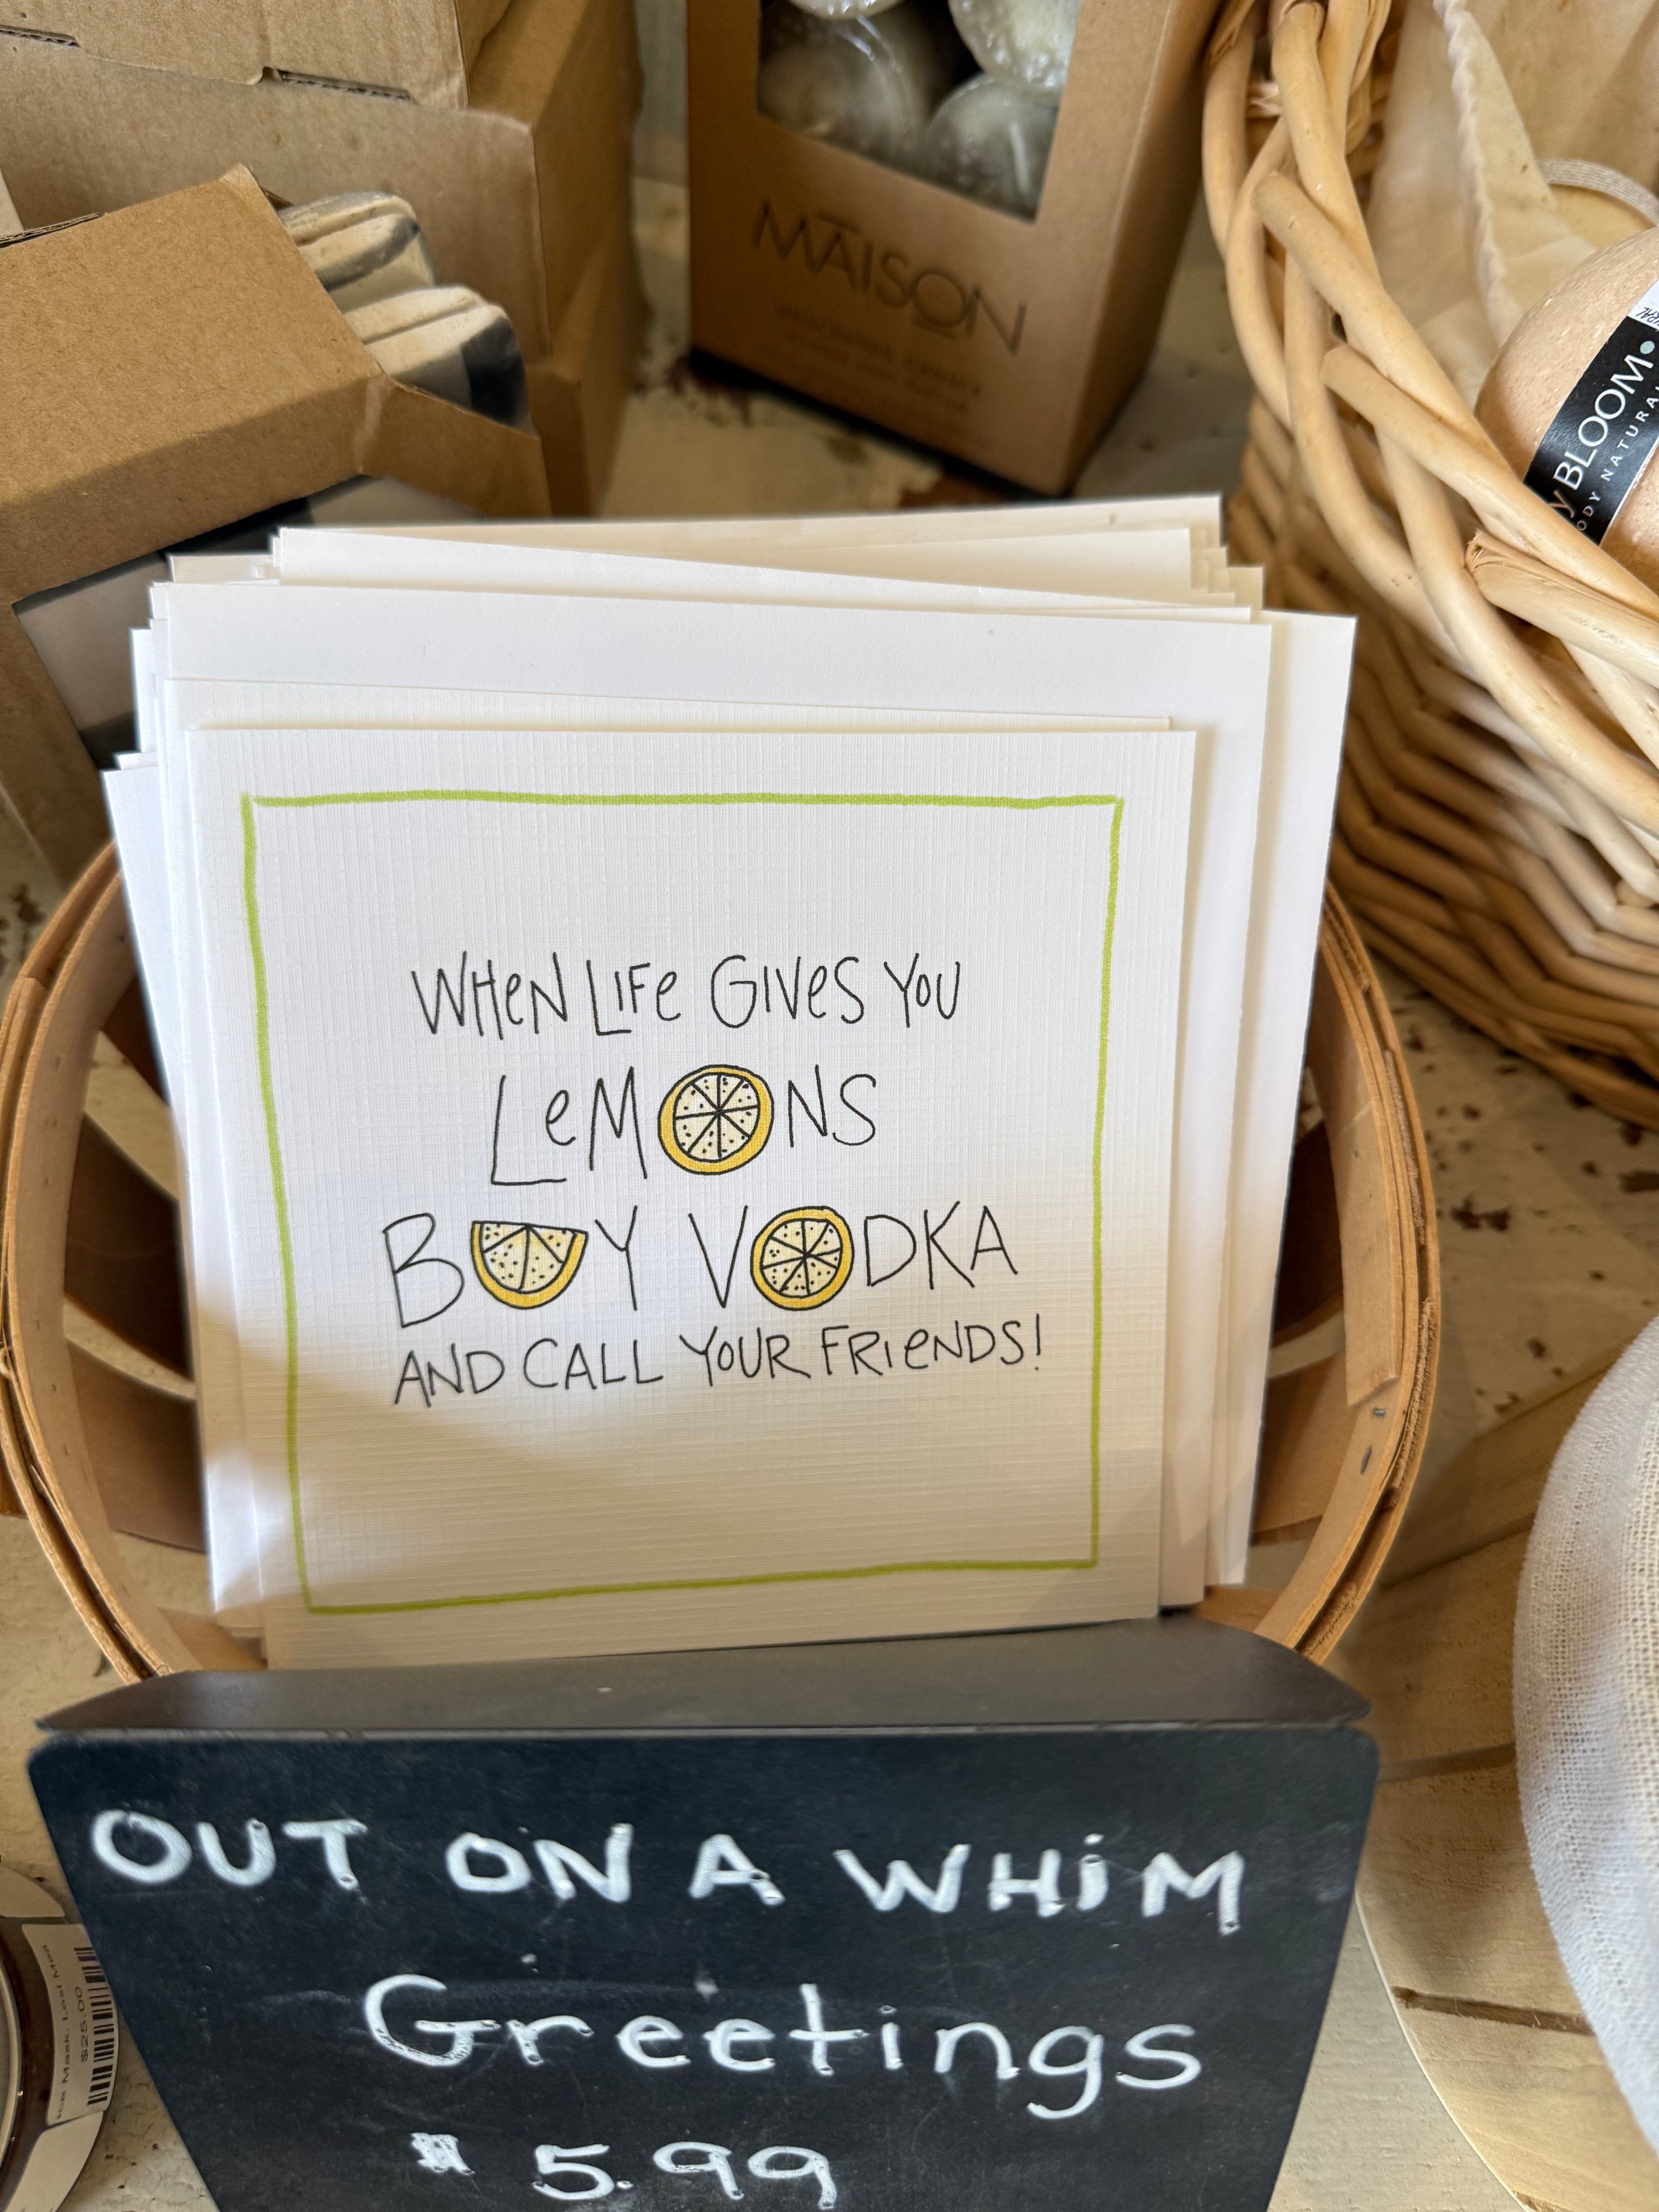 MAISON
BLOOM
NATURA
WHeN LIFe GIVeS YOU
LeMONS
BUY VODKA
AND CALL YOUR FRIeNDS!
OUT ON A WHiM
Greetings
$ 5.99
$25.00